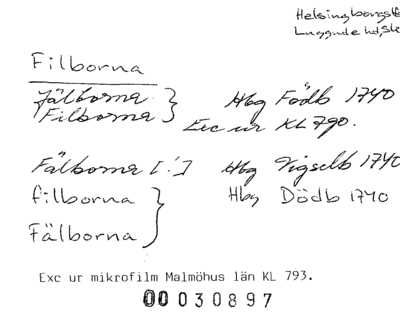 Helsingborgs
Luggude hd, Sk
Filborna
Fälborna } Hbg Födb 1740
Filborna
Exc ur KL 790.
Fälborna [!] Hbg Vigselb 1740
filborna } Hbg Dödb 1740
Fälborna
Exc ur mikrofilm Malmöhus län KL 793.
00 030897